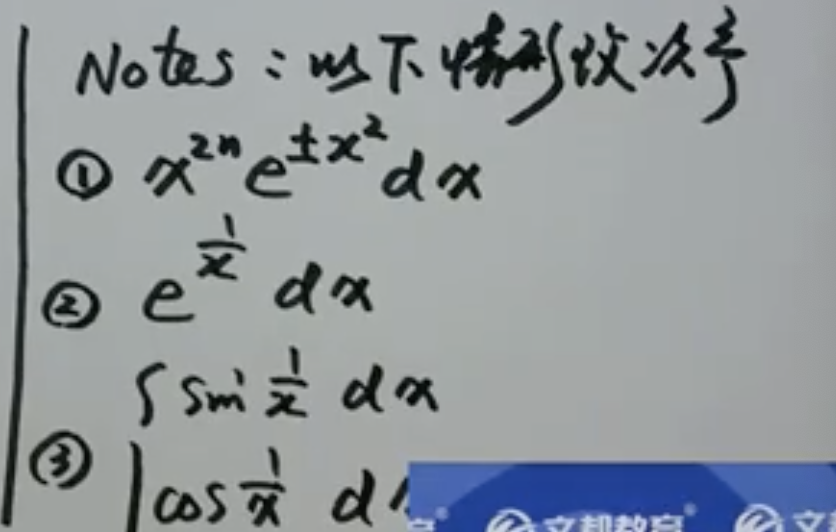 Notes：以下情形改次序
① x²ⁿe^{±x²}dx
② e^{1/x} dx
③ { sin 1/x dx
cos 1/x d
文都教育
文